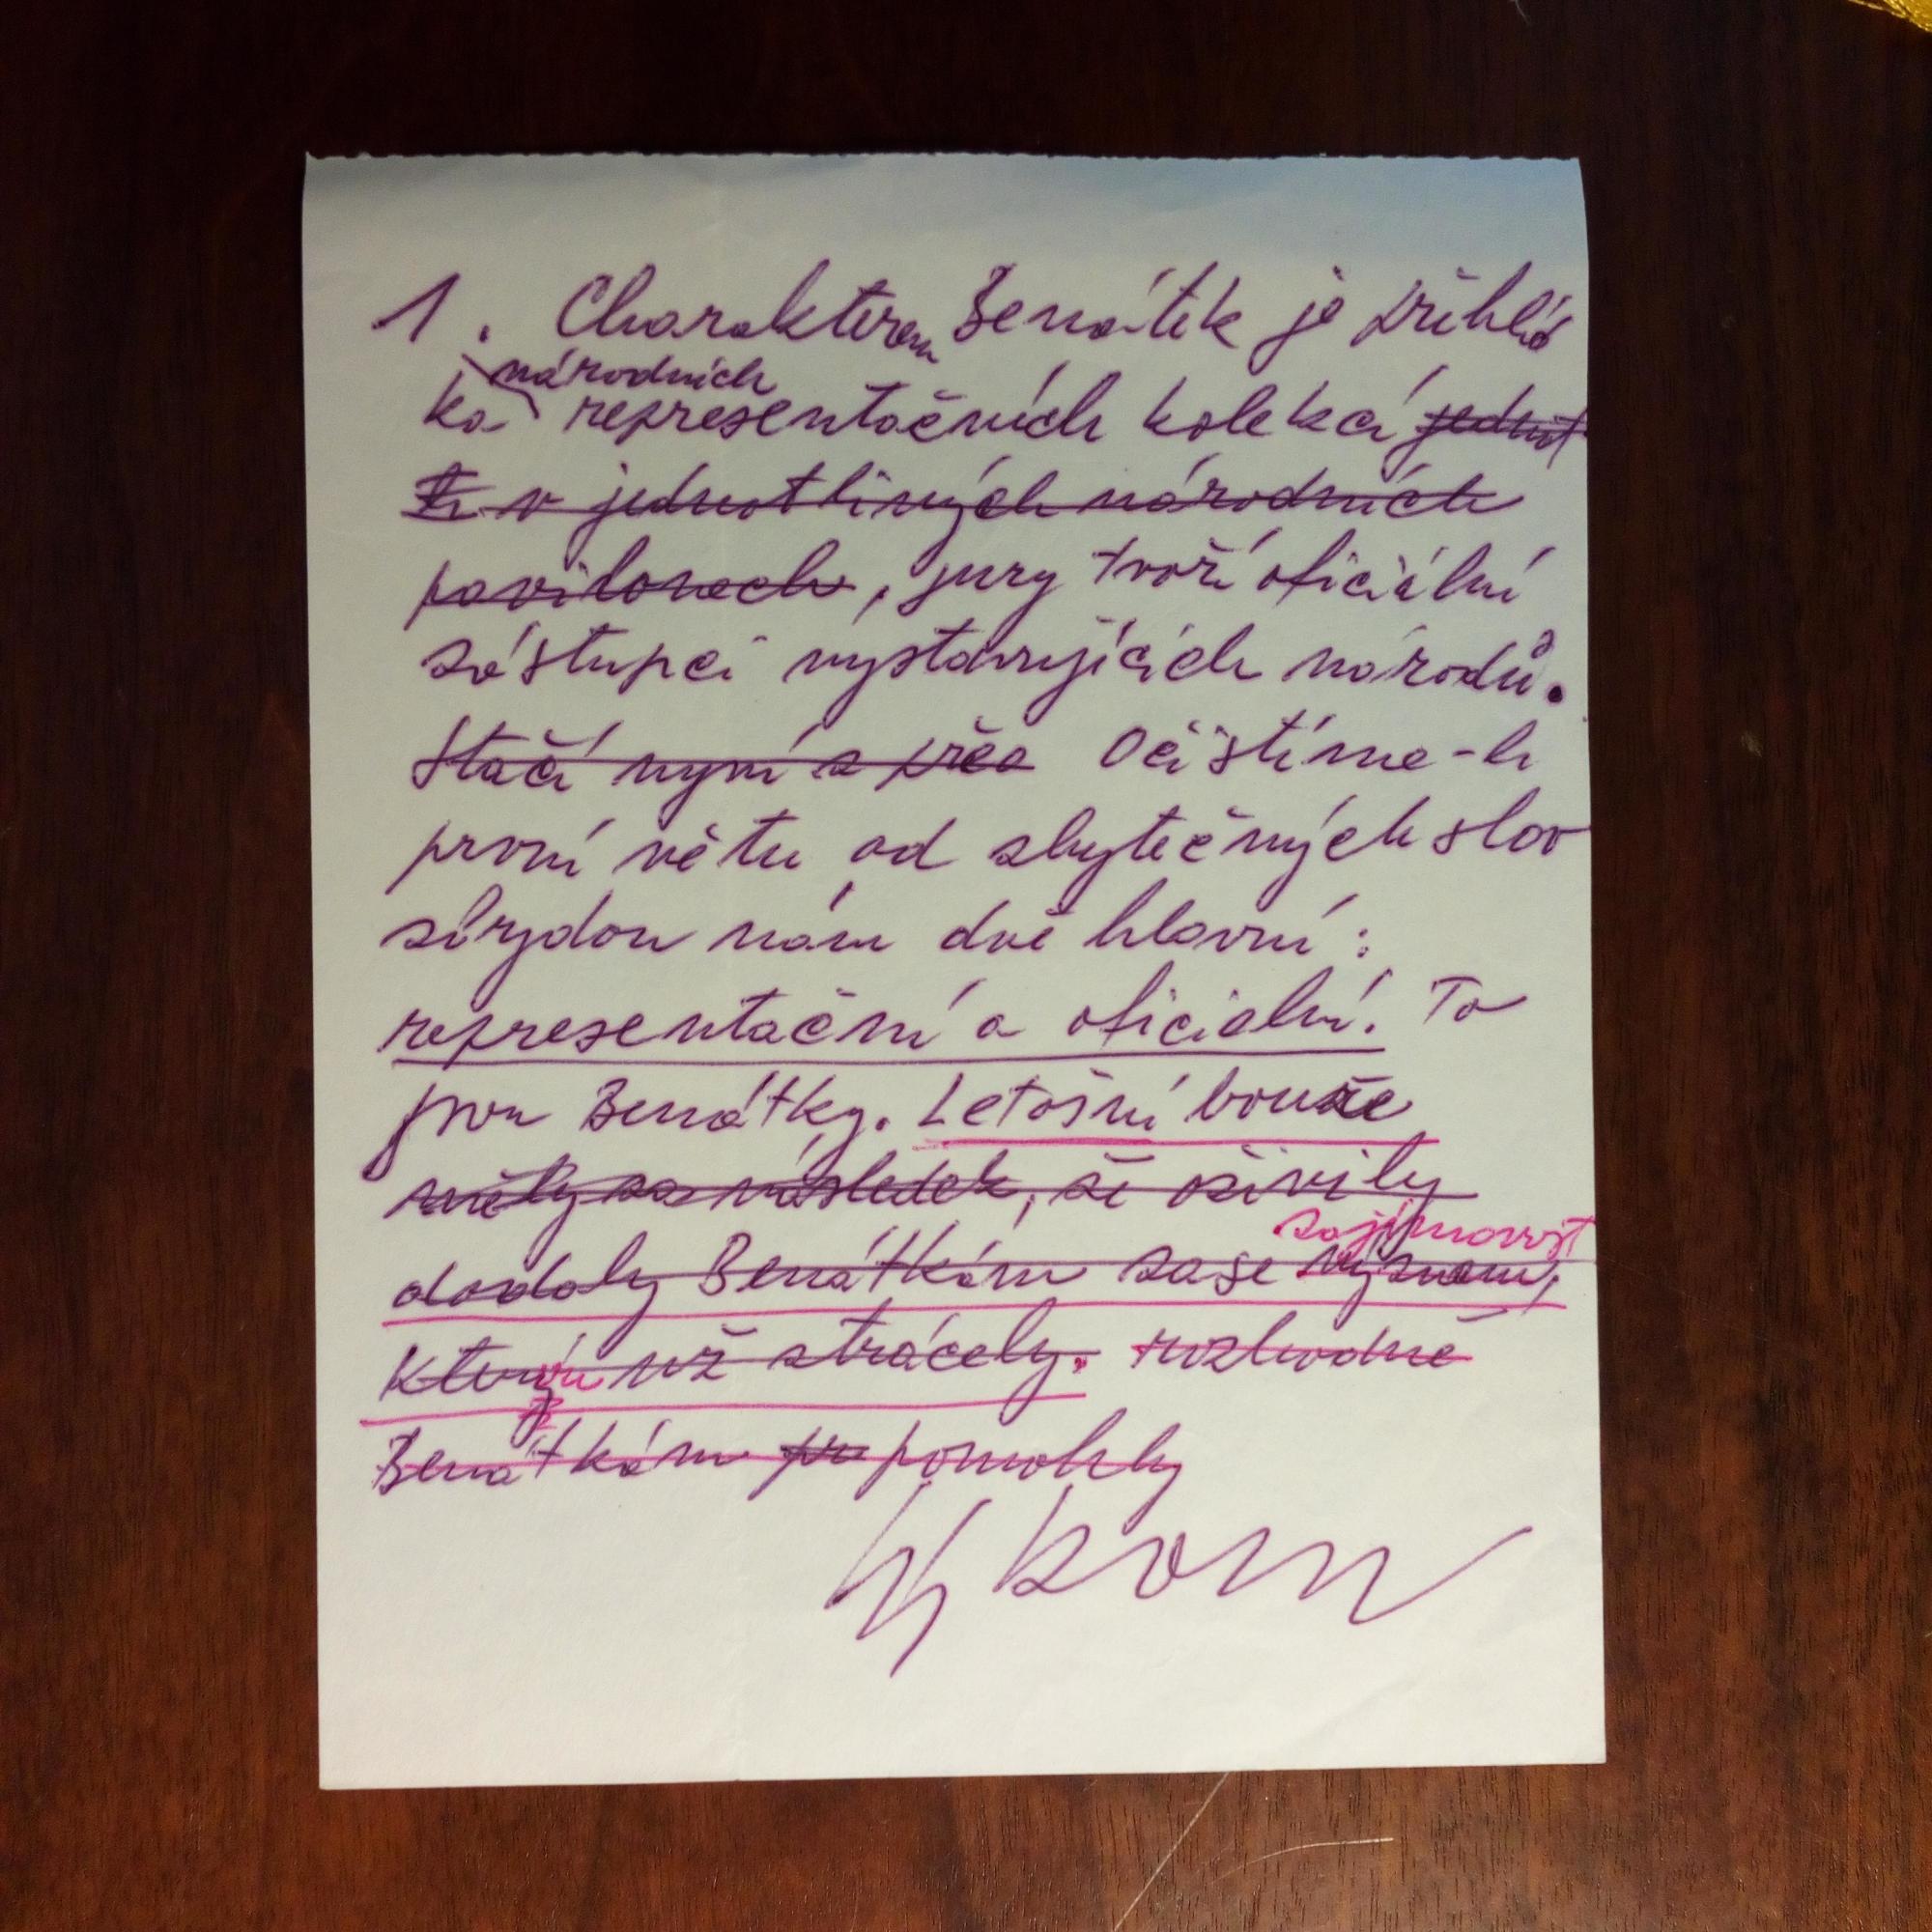 1. Charakterem Benátek je přehlíd
národních
ka representačních kolekcí jednot
li v jednotlivých národních
pavilonech, jury tvoří oficiální
zástupci vystavujících národů.
Stačí nyní z přeo Očistíme-li
první větu od zbytečných slov
zbydou nám dvě hlavní:
representační a oficielní. To
jsou Benátky. Letošní bouře
měly za následek, že oživily
zajímavost
dodaly Benátkám zase význam,
který už ztrácely. rozhodně
Benátkám po pomohly